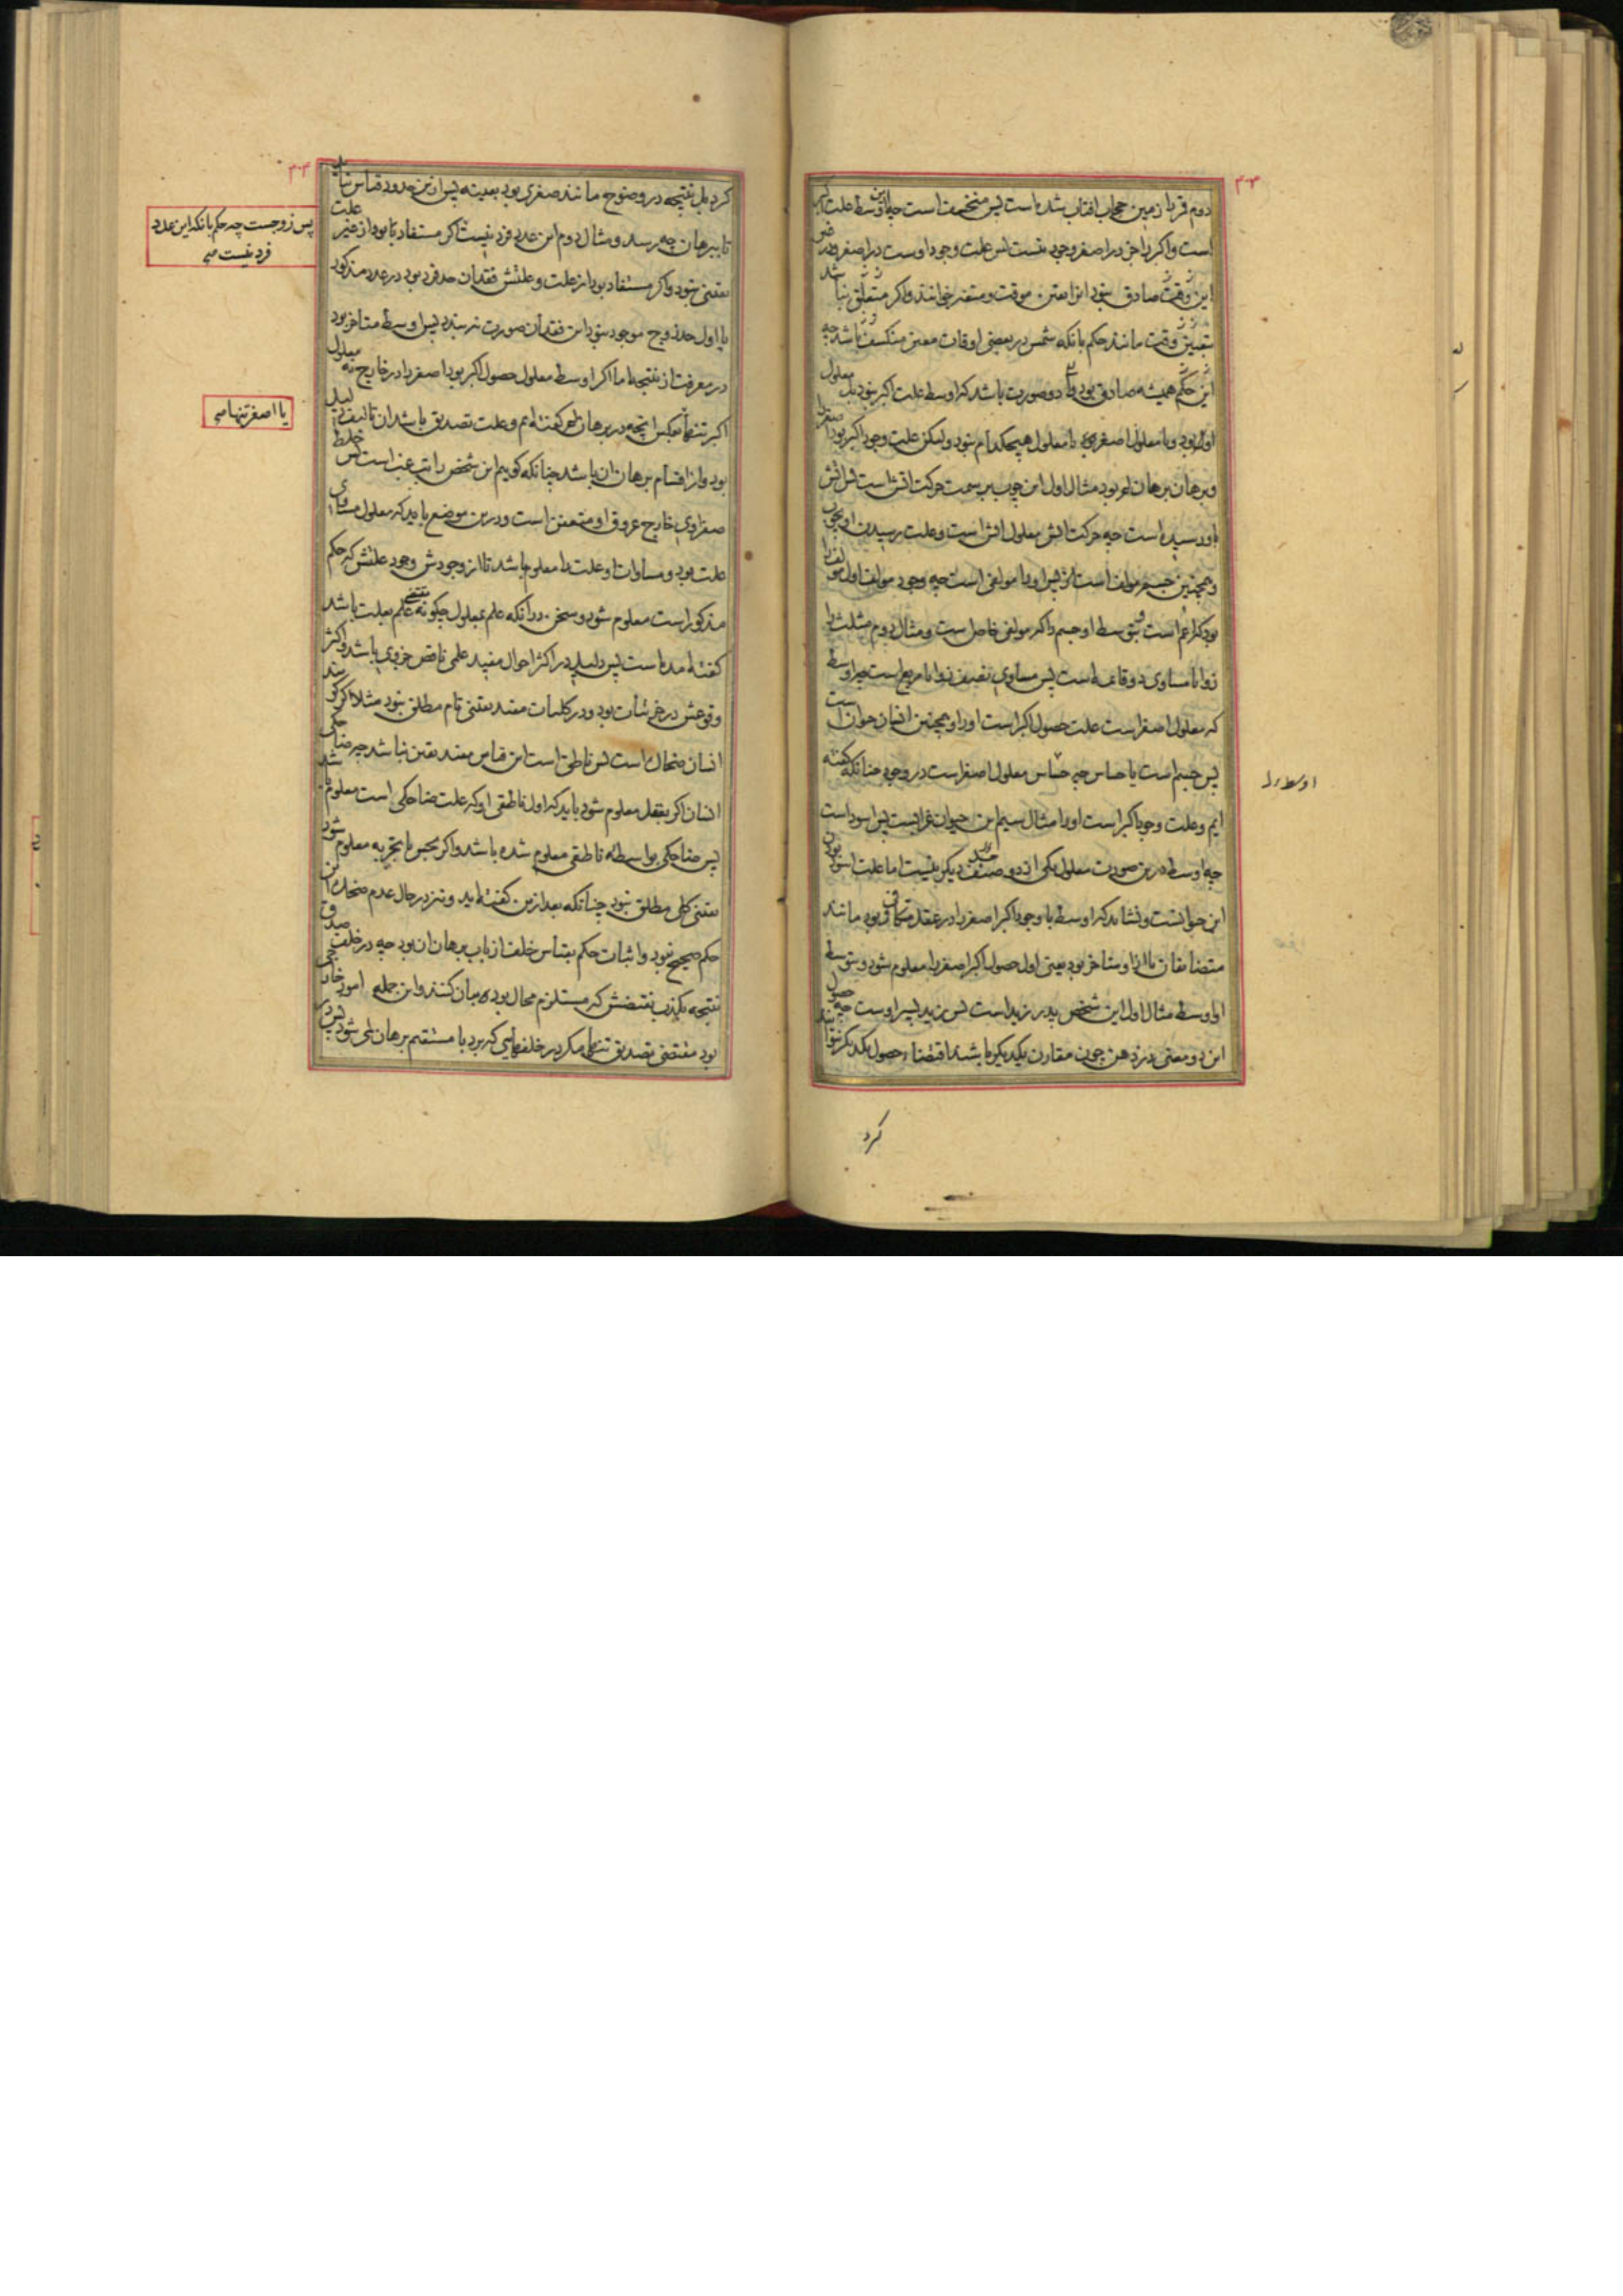 دوم قمر را زمین حجاب افتاب شده است پس منخسف است چه اوسط علت اکبر
است و اکبر را جز در اصغر وجود نیست پس علت وجود اوست در اصغر و در
این وقت صادق بود انرا معین موقت و متغیر خوانند و اکر متعلق نباشد
بتعیین وقت مانند حکم بانکه شمس در بعضی اوقات معین منکسف باشد چه
این حکم همیشه صادق بود و در صورت باشد که اوسط علت اکبر نبود بل معلول
او بود و یا معلول اصغر بود یا معلول هیچکدام نبود ولیکن علت وجود اکبر بود اصغر را
و برهان برهان لم بود مثال اول این چوب بر سمت حرکت اتش است پس اتش
باو رسیده است چه حرکت اتش معلول اتش است و علت رسیدن او بچوب
و همچنین جسم مولف است پس او را مولفی است چه وجود مولف اول مولف را
بود که اعم است و بتوسط او جسم را که مولفی خاص است و مثال دوم مثلث را
زوایا مساوی دو قائمه است پس مساوی نصف زوایا مربع است چه اوسط
که معلول اصغر است علت حصول اکبر است او را و همچنین انسان حیوان است
پس جسم است یا حساس چه حساس معلول اصغر است در وجود چنانکه کفته
ایم و علت وجود اکبر است او را مثال سیم این حیوان غرابست پس اسود است
چه اوسط درین صورت معلول یکی از دو حد دیکر نیست اما علت اسود بودن
این حیوانست و نشاید که اوسط با وجود اکبر اصغر را در عقد متکافی بود مانند
متضایفان یا ازو متاخر بود یعنی اول حصول اکبر اصغر را معلوم شود و بتوسط
او اوسط مثال اول این شخص پدر زید است پس زید پسر اوست چه حصول
این دو معنی در ذهن چون مقارن یکدیکر باشند اقتضاء حصول یکدیکر نتوانند
کرد
اوسط را
کرد بل نتیجه در وضوح مانند صغری بود بعینه پس ازین حدود قیاس نیاید
تا ببرهان چه رسد و مثال دوم این عدد فرد نیست اکر مستفاد بود از غیر علت
یقینی نبود و اکر مستفاد بود از علت و علتش فقدان حد فرد بود در عدد مذکور
تا اول حد زوج موجود نبود این فقدان صورت نبندد پس اوسط متاخر بود
در معرفت از نتیجه اما اکر اوسط معلول حصول اکبر بود اصغر را در خارج نه معلول
اکبر تنها بعکس انچه در برهان لم کفته ایم و علت تصدیق باشد ان تالیف دلیل
بود و از اقسام برهان ان باشد چنانکه کوییم این شخص را تب غب است پس خلط
صفراوی خارج عروق او متعفن است و درین موضع باید که معلول مساوی
علت بود و مساوات او علت را معلوم باشد تا از وجودش وجود علتش که حکم
مذکور است معلوم شود و سخن در انکه علم بمعلول چکونه مقتضی علم بعلت باشد
کفته امده است پس دلیل در اکثر احوال مفید علمی ناقص جزوی باشد و اکثر
وقوعش در جزئیات بود و در کلیات مفید یقینی تام مطلق نبود مثلا اکر کویند
انسان ضحاک است پس ناطق است این قیاس مفید یقین نباشد چه ضاحکی
انسان اکر بعقل معلوم شود باید که اول ناطقی او که علت ضاحکی است معلوم شده باشد
پس ضاحکی بواسطه ناطقی معلوم شده باشد و اکر بحس یا بتجربه معلوم شود
یقینی کلی مطلق نبود چنانکه بعد ازین کفته اید و نیز در حال عدم ضحک این
حکم صحیح نبود و اثبات حکم بقیاس خلف از باب برهان ان بود چه در خلف صدق
نتیجه بکذب نقیضش که مستلزم محال بود بیان کنند و این جمله امور خارجی
بود مقتضی تصدیق تنها مکر در خلفهایی که برد با مستقیم برهان لمی شود پس در
پس زوجست چه حکم بانکه این عدد
فرد نیست صح
یا اصغر تنها صح